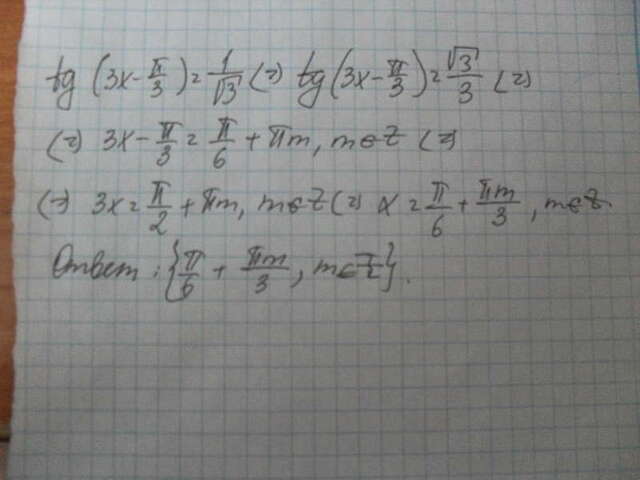 tg (3x - π/3) = 1/√3 (=) tg (3x - π/3) = √3/3 (=)
(=) 3x - π/3 = π/6 + πm, m∈Z (=)
(=) 3x = π/2 + πm, m∈Z (=) x = π/6 + πm/3, m∈Z.
Ответ: {π/6 + πm/3, m∈Z}.